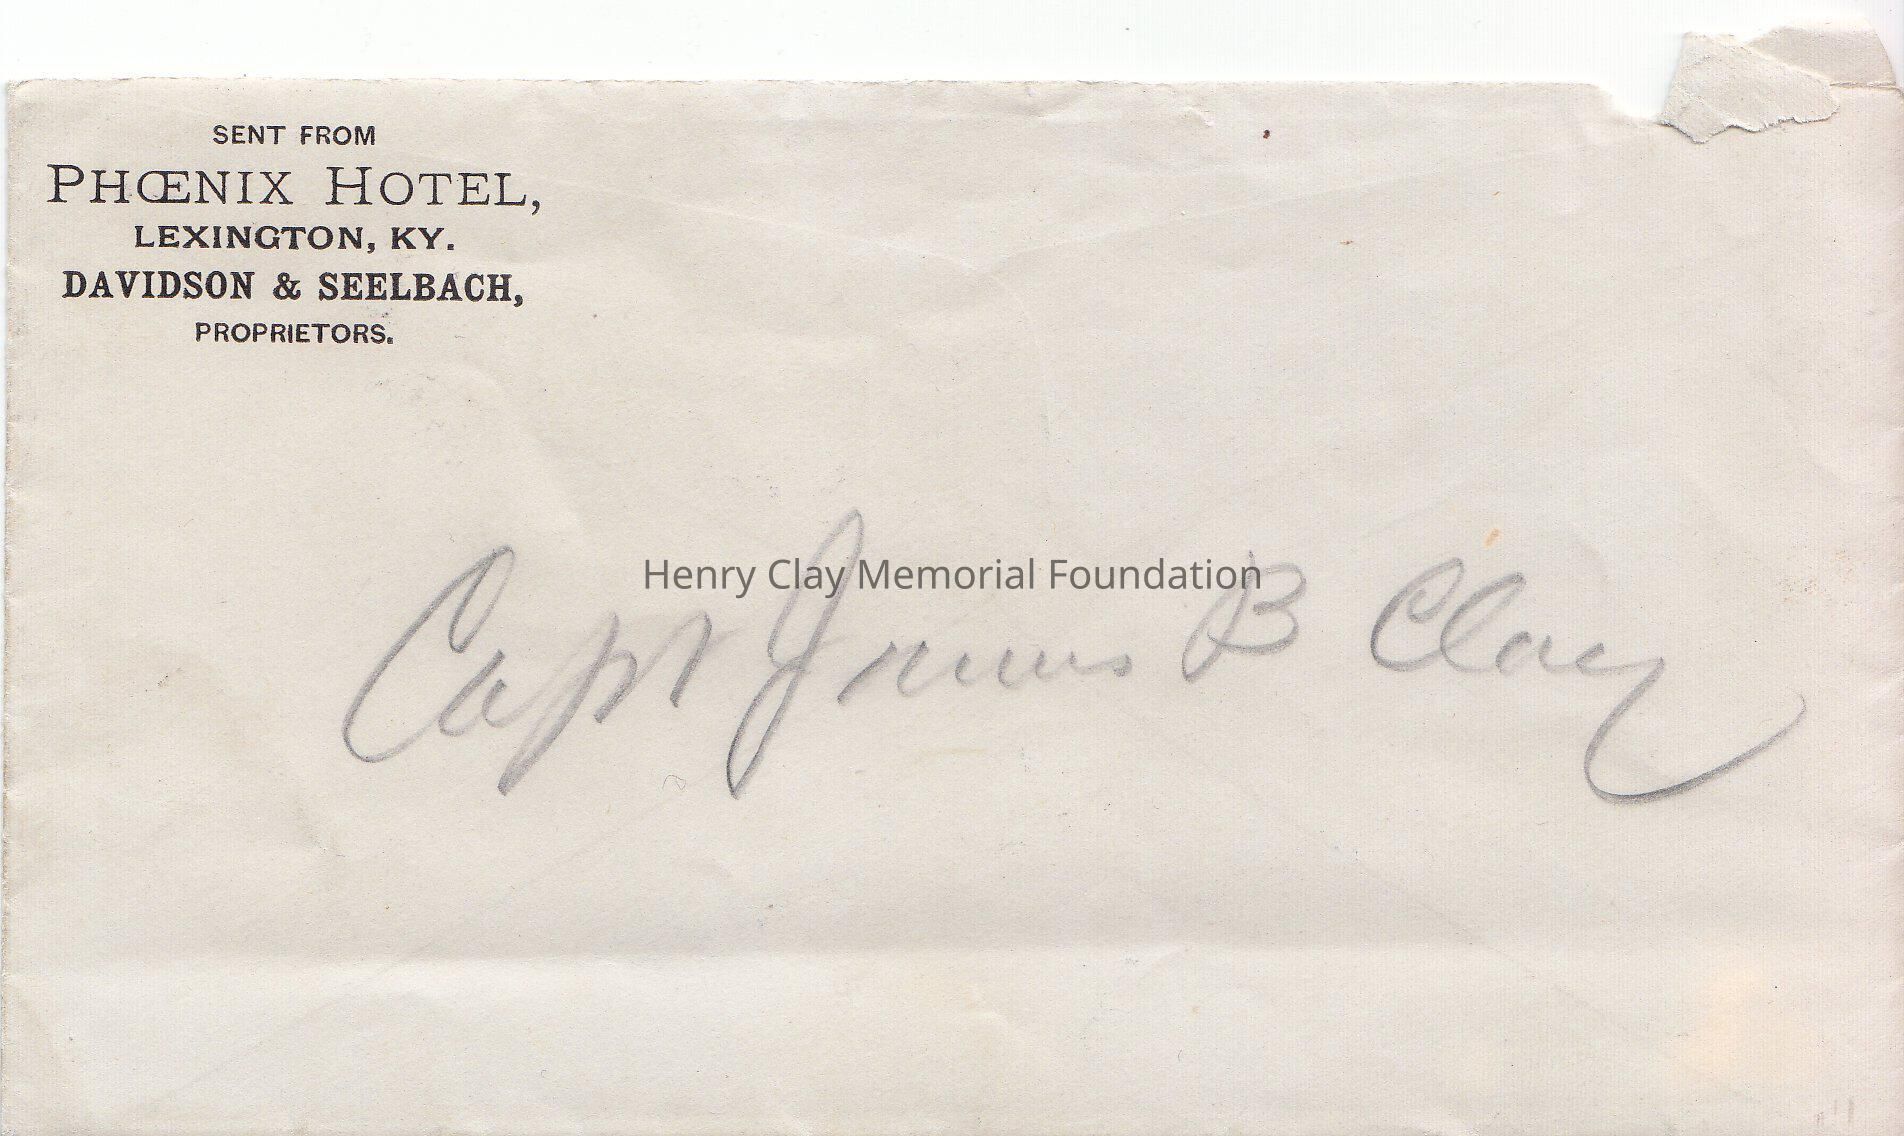 SENT FROM
PHŒNIX HOTEL,
LEXINGTON, KY.
DAVIDSON & SEELBACH,
PROPRIETORS.
Henry Clay Memorial Foundation
Capt James B Clay